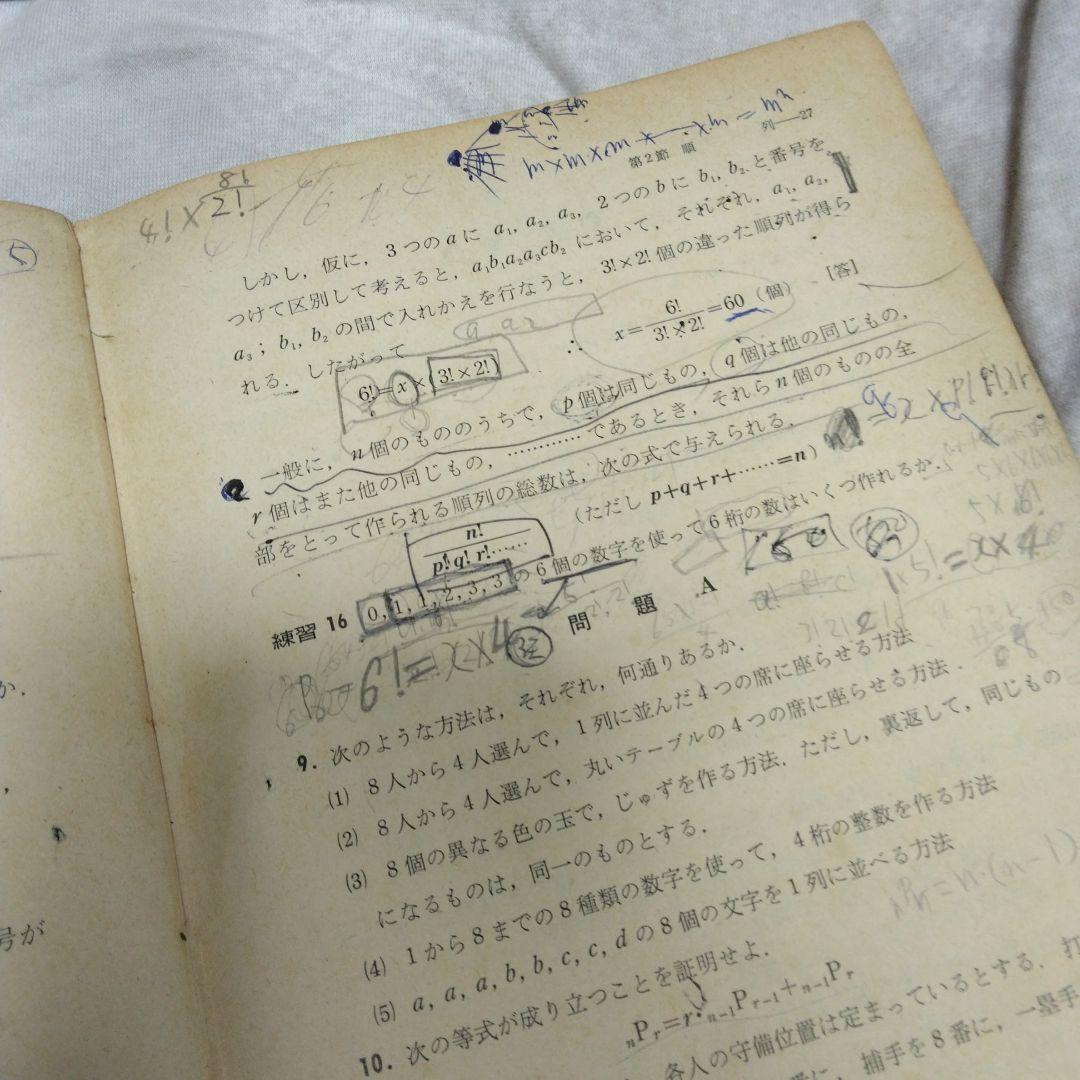 第2節 順 列―27
m×m×m×……×m = mⁿ
4!×8!/2!
しかし，仮に，3つのaに a₁, a₂, a₃, 2つのbに b₁, b₂と番号を
つけて区別して考えると，a₁b₁a₂a₃cb₂ において，それぞれ，a₁, a₂,
a₃；b₁, b₂の間で入れかえを行なうと，3!×2!個の違った順列が得ら
れる．したがって
6!=x×(3!×2!) ∴ x=6!/(3!×2!)=60（個） [答]
一般に，n個のもののうちで，p個は同じもの，q個は他の同じもの，
r個はまた他の同じもの，…………であるとき，それらn個のものの全
部をとって作られる順列の総数は，次の式で与えられる．
n!/(p!q!r!……) （ただし p+q+r+……=n）
練習 16 0, 1, 1, 2, 3, 3の6個の数字を使って6桁の数はいくつ作れるか．
6!=x×4
1×5!=x×4
問題 A
9. 次のような方法は，それぞれ，何通りあるか．
(1) 8人から4人選んで，1列に並んだ4つの席に座らせる方法
(2) 8人から4人選んで，丸いテーブルの4つの席に座らせる方法．
(3) 8個の異なる色の玉で，じゅずを作る方法．ただし，裏返して，同じもの
になるものは，同一のものとする．
(4) 1から8までの8種類の数字を使って，4桁の整数を作る方法
(5) a, a, a, b, b, c, c, dの8個の文字を1列に並べる方法
10. 次の等式が成り立つことを証明せよ．
ₙPᵣ=r・ₙ₋₁Pᵣ₋₁+ₙ₋₁Pᵣ
ₙPᵣ=n・(n-1)
各人の守備位置は定まっているとする．打
番に，捕手を8番に，一塁手
5
か．
号が